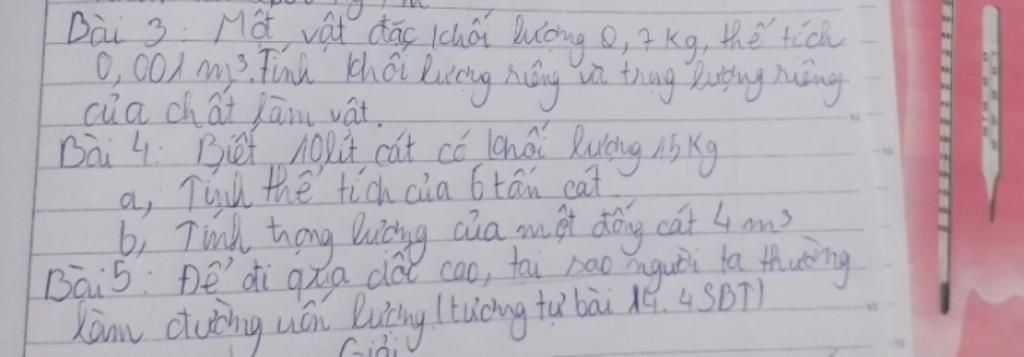 Bài 3: Một vật đặc khối lượng 0,7 kg, thể tích
0,001 m³. Tính khối lượng riêng và trọng lượng riêng
của chất làm vật.
Bài 4: Biết 10 lít cát có khối lượng 15 kg
a, Tính thể tích của 6 tấn cát
b, Tính trọng lượng của một đống cát 4 m³
Bài 5: Để đi qua dốc cao, tại sao người ta thường
làm đường uốn lượng (tương tự bài 14.4 SBT)
Giải